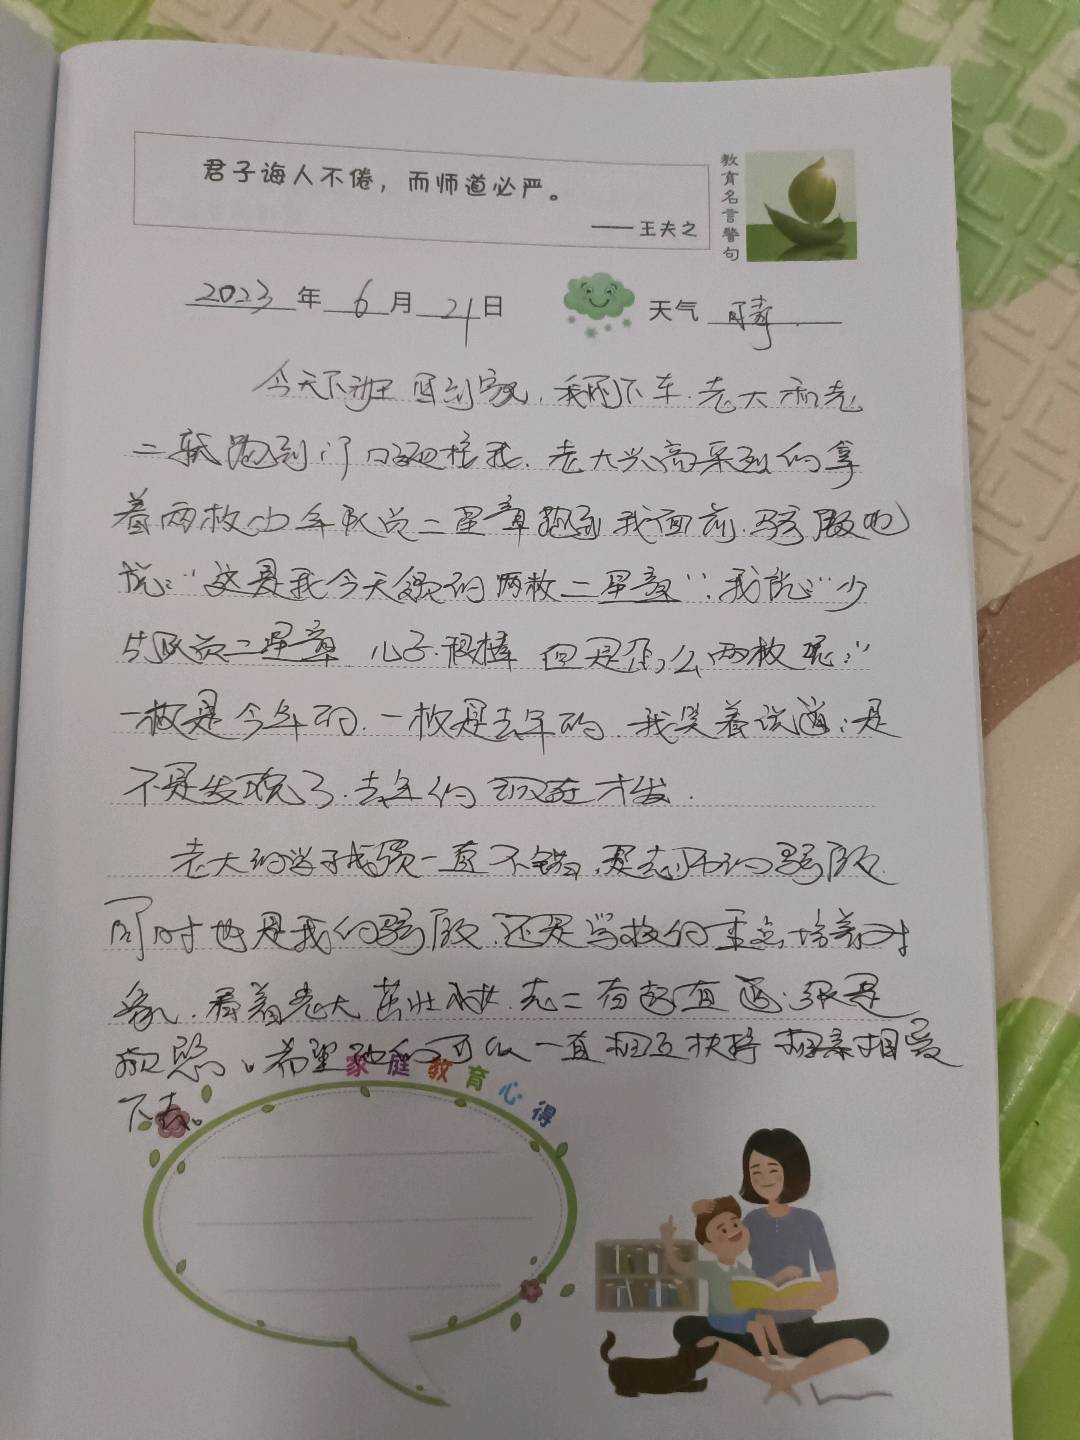 君子诲人不倦，而师道必严。
——王夫之
教育名言警句
2023年6月21日 天气 晴.
今天下班回到家,我刚下车.老大和老
二就跑到门口迎接我.老大兴高采烈的拿
着两枚少年队员二星章跑到我面前.骄傲地
说:“这是我今天领的两枚二星章”.我说:“少
年队员二星章 儿子.很棒 但是怎么两枚呢:”
一枚是今年的.一枚是去年的.我笑着说道:是
不是发晚了.去年的现在才发.
老大的学习成绩一直不错.是老师的骄傲.
同时也是我的骄傲.还是学校的重点培养对
象.看着老大茁壮成长.老二 很是
欣慰。希望他们可以一直相互扶持 相亲相爱
下去。
家庭教育心得